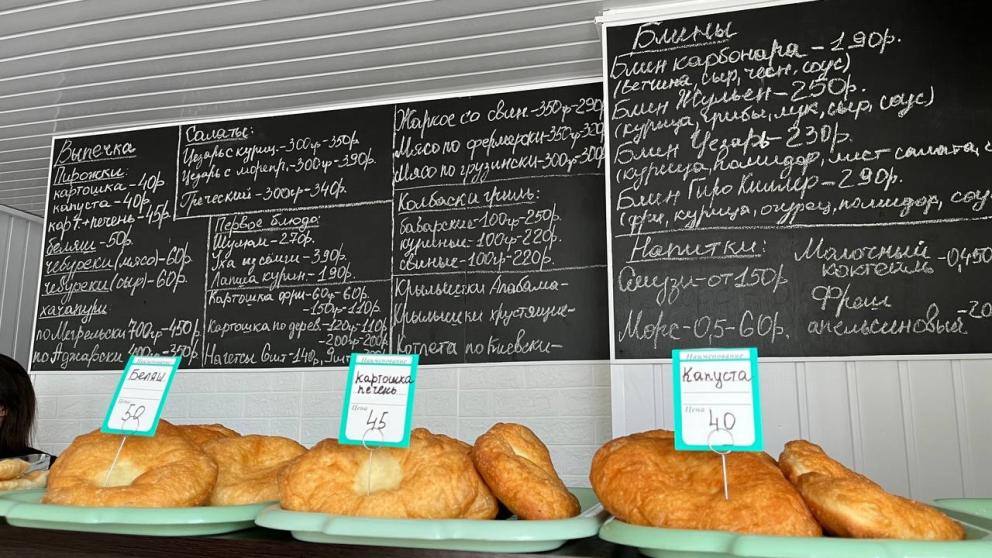 Выпечка
Пирожки:
картошка-40р.
капуста-40р.
карт+печень-45р.
беляш-50р.
чебуреки(мясо)-60р.
чебуреки(сыр)-60р.
хачапури
по Мегрельски 700гр-450р.
по Аджарски 400гр-350р.
Салаты:
Цезарь с куриц.-300гр-350р.
Цезарь с морепр.-300гр-390р.
Греческий-300гр-340р.
Первое блюдо:
Шулюм-270р.
Уха из сёмги-390р.
Лапша курин-190р.
Картошка фри-60гр-60р.
-150гр-110р.
Картошка по дерев.-120гр-110р.
-200гр-200р.
Нагетсы 6шт-140р, 9шт
Жаркое со свин.-350гр-290
Мясо по фермерски-350гр320
Мясо по грузински-300гр300р
Колбаски гриль:
баварские-100гр-250р.
куриные-100гр-220р.
свиные-100гр-220р.
Крылышки Алабама-
Крылышки хрустящие-
Котлета по Киевски-
Блины
Блин карбонара-190р.
(ветчина, сыр, чесн, соус)
Блин Жульен-250р.
(курица, грибы, лук, сыр, соус)
Блин Цезарь-230р.
(курица, помидор, лист салата, с
Блин Гиро Киллер-290р.
(фри, курица, огурец, помидор, соус
Напитки:
Смузи-от150р
Морс-0,5-60р.
Молочный
коктейль -0,450
Фреш
апельсиновый-20
Беляш
Цена
50
Наименование
картошка
печень
Цена
45
Наименование
Капуста
Цена
40